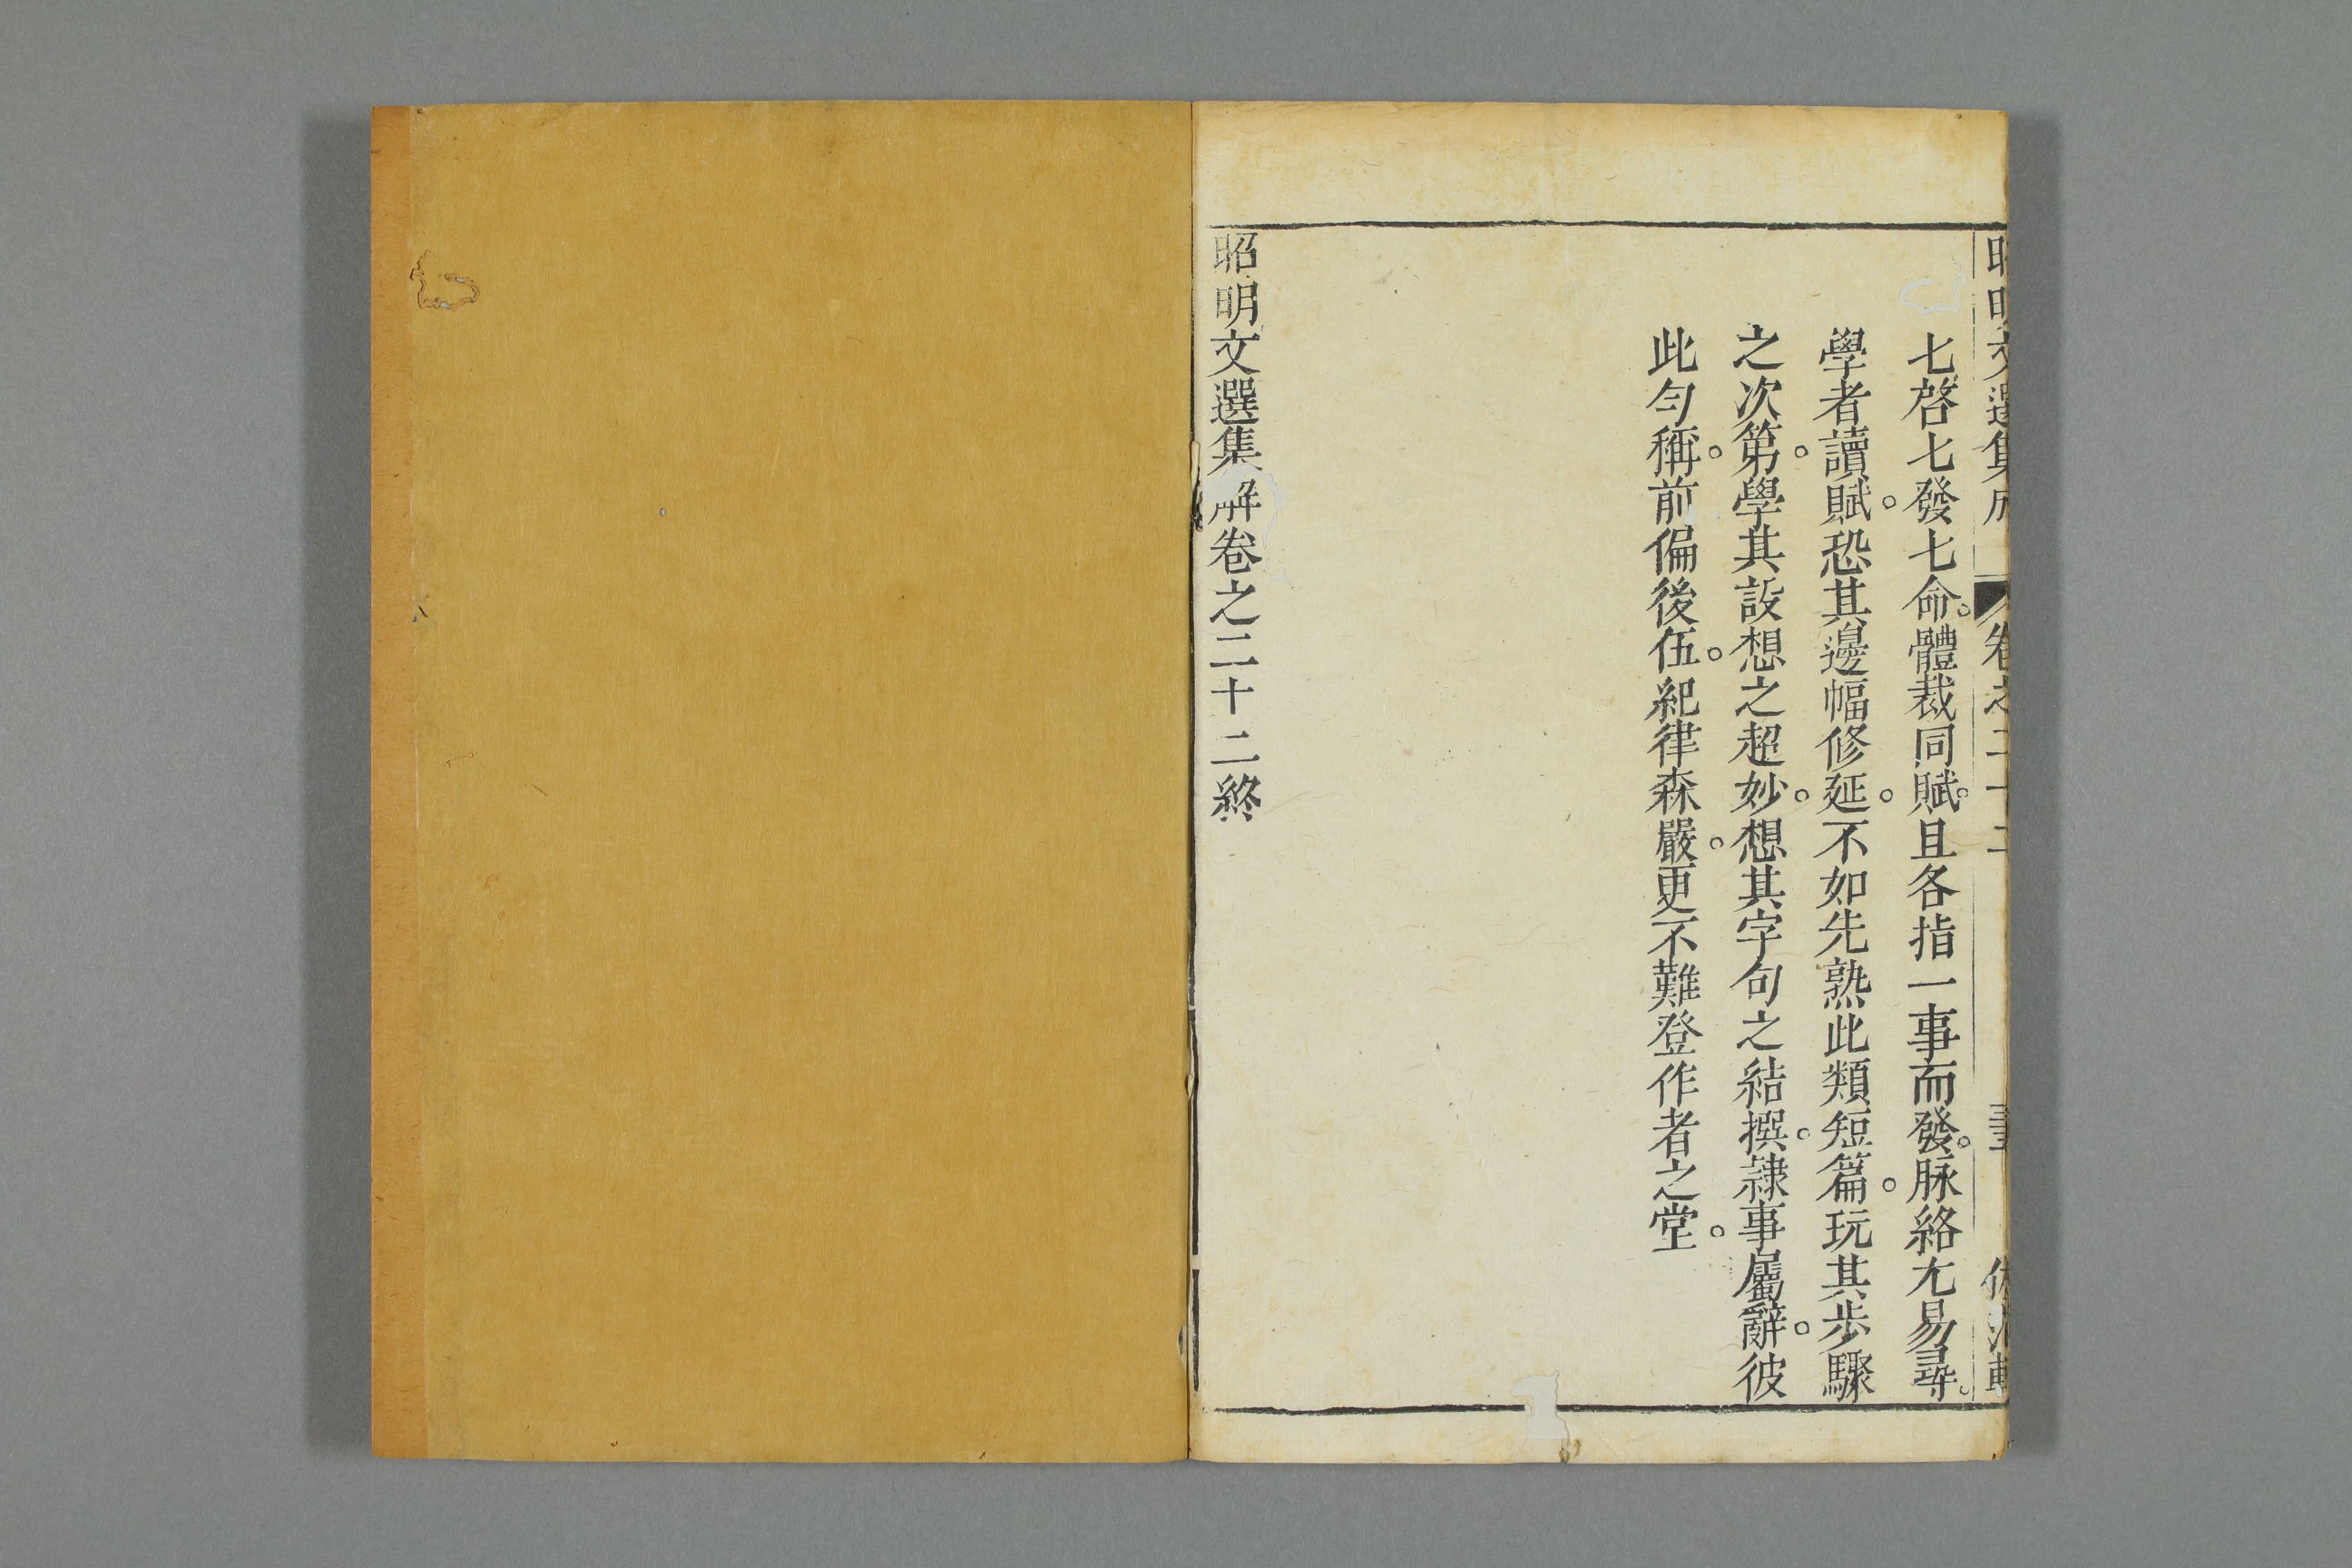 昭明文選集成 卷之二十二
七啓七發七命。體裁同賦。且各指一事而發。脉絡尤易尋。
學者讀賦。恐其邊幅修延。不如先熟此類短篇。玩其步驟
之次第。學其設想之超妙。想其字句之結撰。隸事屬辭。彼
此勻稱。前偏後伍。紀律森嚴。更不難登作者之堂。
昭明文選集解卷之二十二終